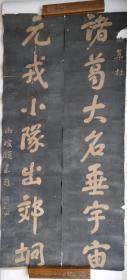 集杜
諸葛大名垂宇宙
元戎小隊出郊坰